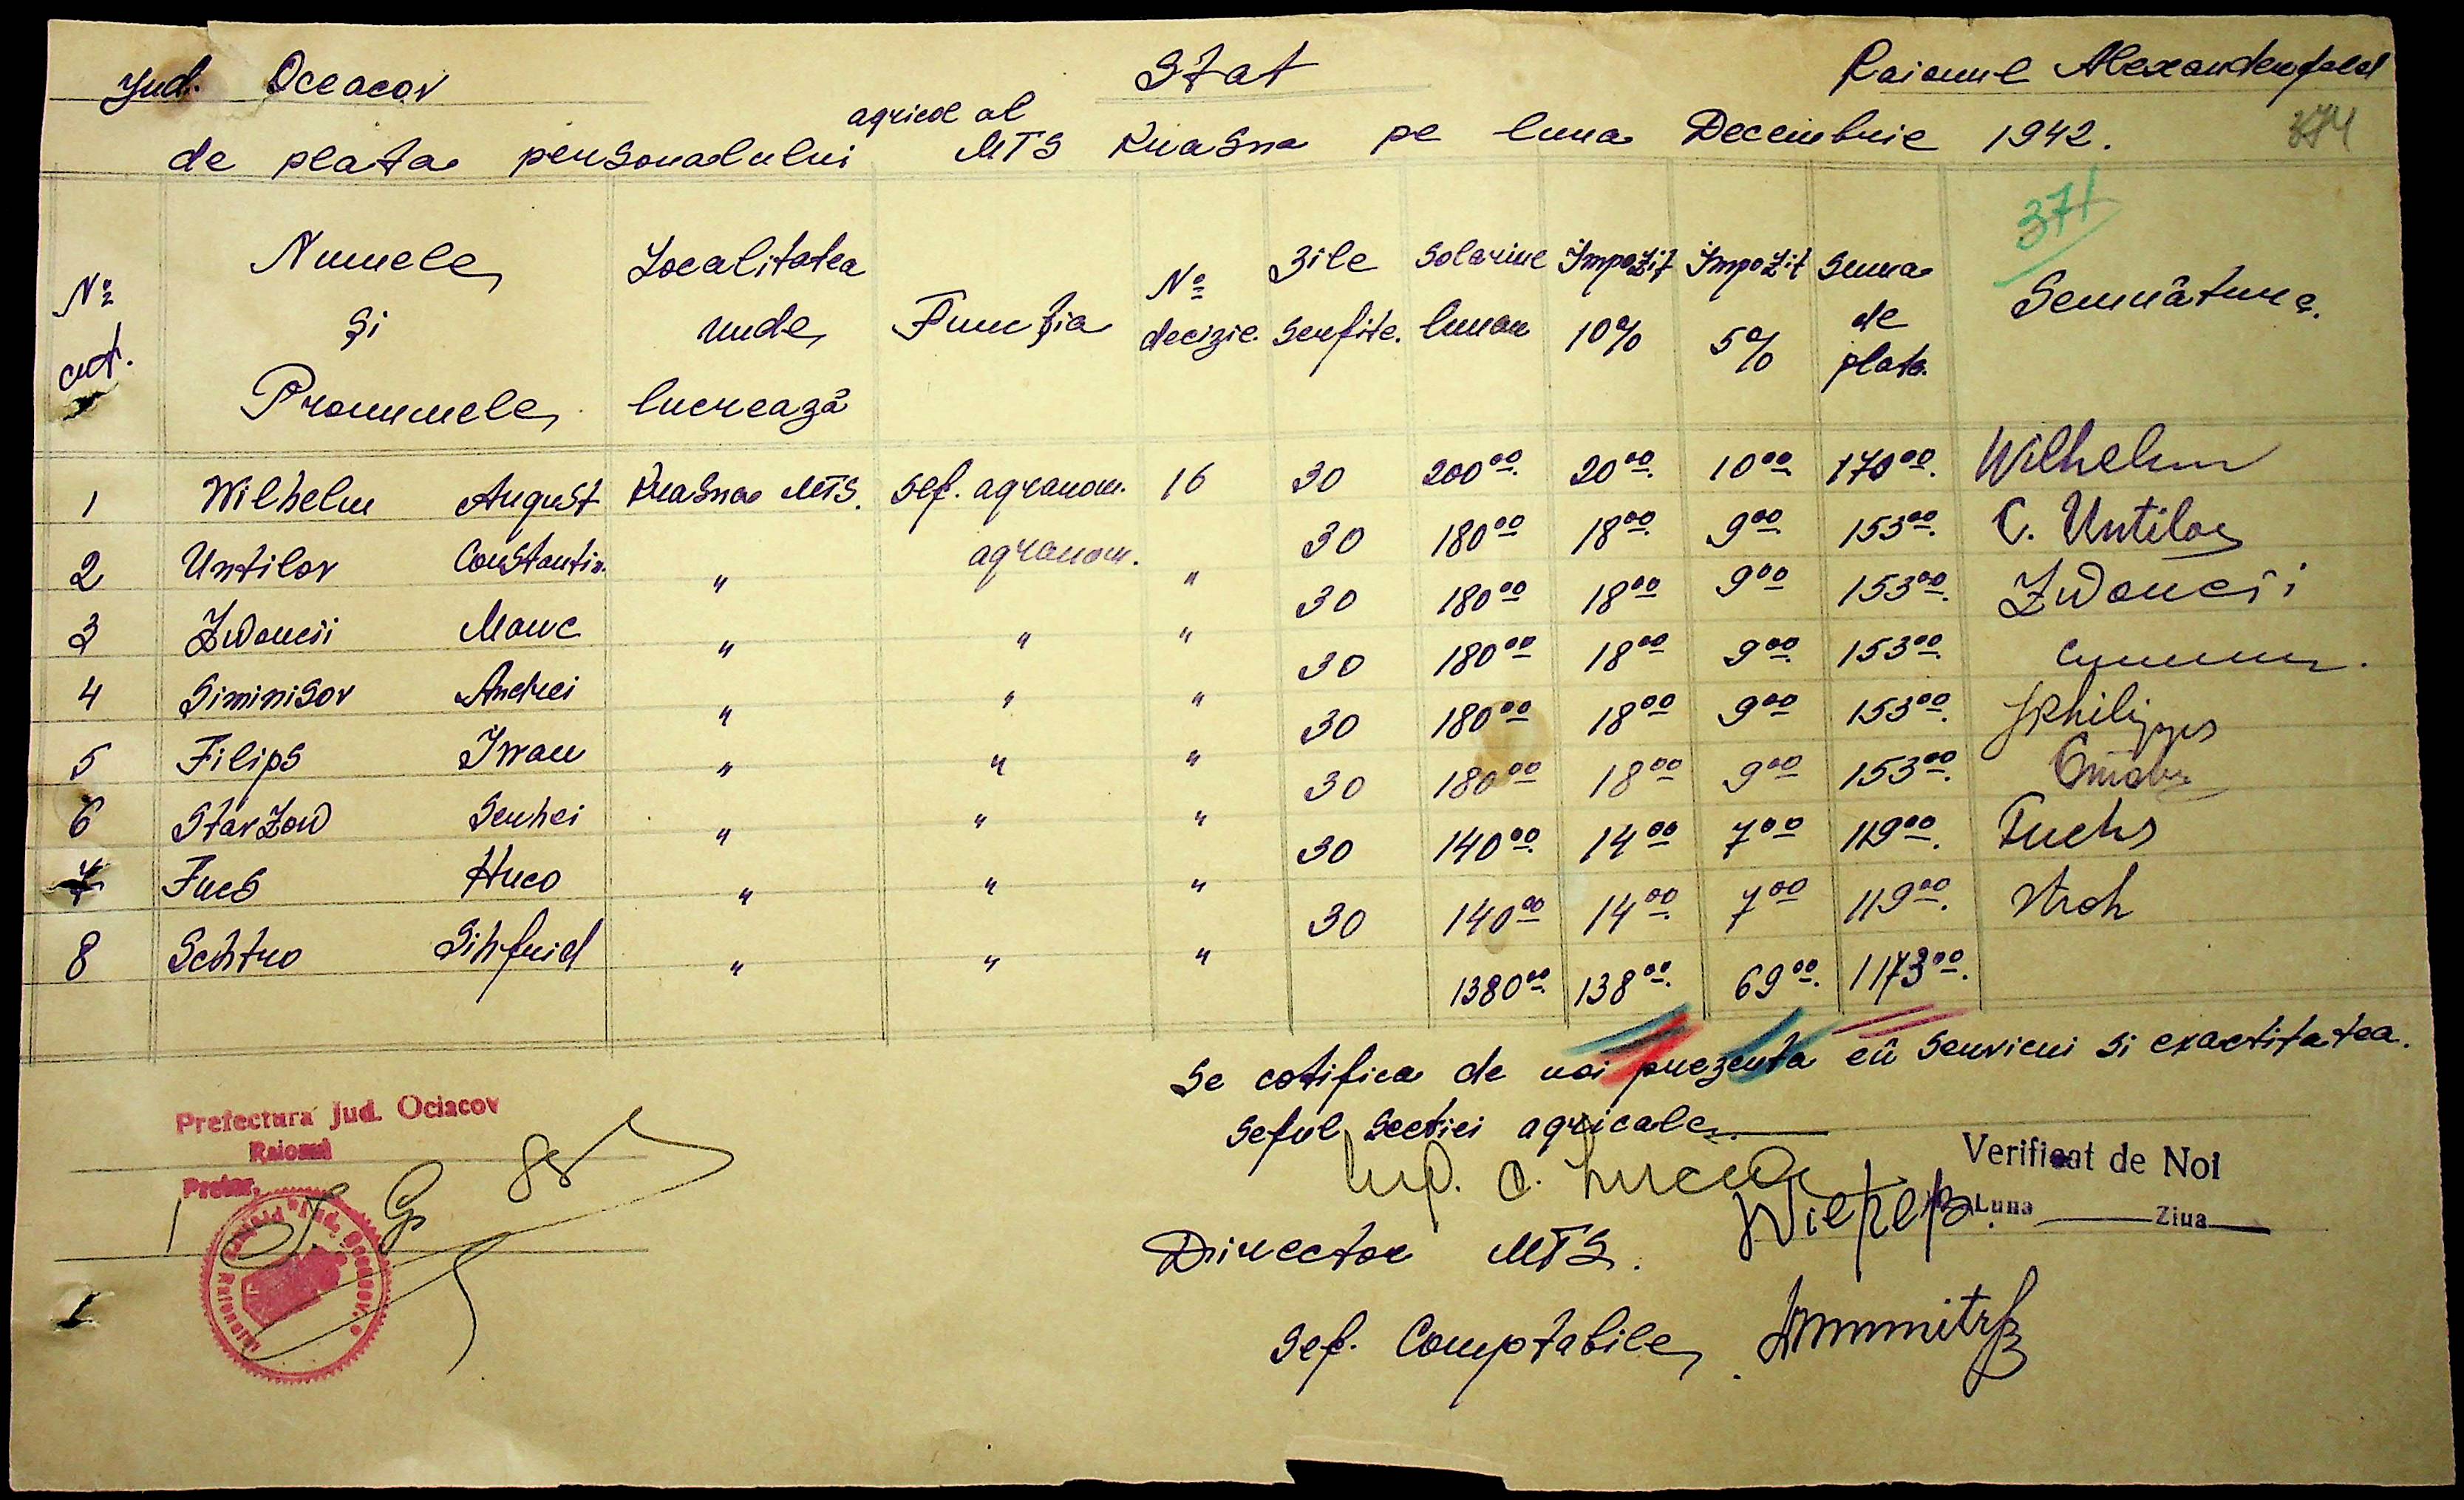 Jud. Oceacov Stat Raionul Alexanderfeld
de plata personalului agricol al MTS Krasna pe luna Decembrie 1942.
374
371
№ crt. Numele și Pronumele Localitatea unde lucrează Funcția № decizie. Zile serfite. Solariul lunar Impozit 10% Impozit 5% Suma de plata. Semnătura.
1 Wilhelm August Krasna MTS. sef. agranom. 16 30 200 00 20 00 10 00 170 00 Wilhelm
2 Untilov Constantin " agranom. " 30 180 00 18 00 9 00 153 00 C. Untilov
3 Zwoncii Marc " " " 30 180 00 18 00 9 00 153 00 Zwoncii
4 Siminisov Andrei " " " 30 180 00 18 00 9 00 153 00
5 Filips Iwan " " " 30 180 00 18 00 9 00 153 00 Philipps
6 Starzow Serhei " " " 30 180 00 18 00 9 00 153 00
7 Fucs Huco " " " 30 140 00 14 00 7 00 119 00 Fuchs
8 Schtro Sihfrid " " " 30 140 00 14 00 7 00 119 00 Stroh
1380 00 138 00 69 00 1173 00
Se cotifica de noi prezenta en serviciu si exactitatea.
Seful Sectiei agricale
Prefectura Jud. Ociacov
Raionul
Pretor,
Verificat de Noi
Luna Ziua
Director MTS.
Sef. Comptabile